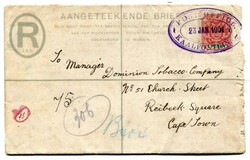 AANGETEEKENDE BRIE
R
23 JAN 1901
To Manager
Dominion Tobacco Company
No 51 Church Street
Reibeek Square
Cape Town
306